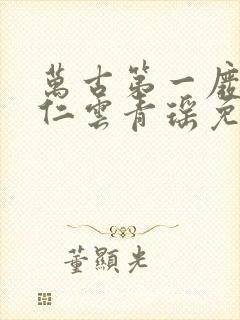 萬古第一廢
仁雲青瑤免
董顯光